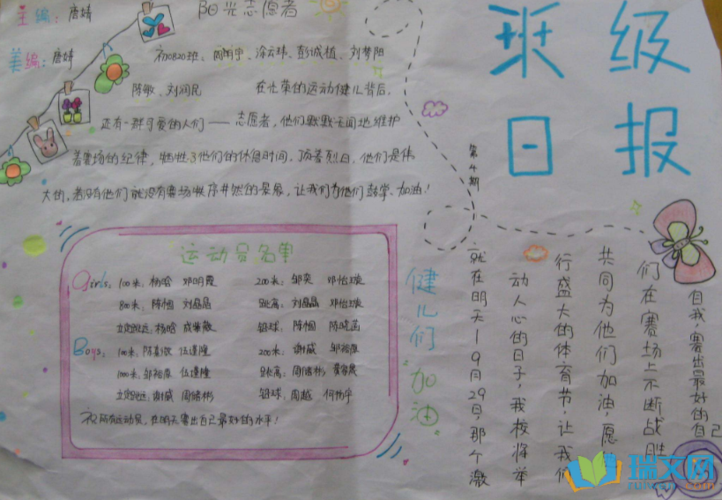 主编：唐婧
美编：唐婧
阳光志愿者
初0820班：
彭诚植、刘梦阳
陈敏、刘润民
在光荣的运动健儿背后，
还有一群可爱的人们——志愿者，他们默默无闻地维护
着赛场的纪律，牺牲了他们的休息时间。顶着烈日，他们是伟
大的，若没有他们就没有赛场秩序井然的景象，让我们为他们鼓掌、加油！
班级
日报
第4期
运动员名单
Girls：100米：杨晗 邓明霞
200米：邹奕 邓怡璇
800米：陈恒 刘晶晶
跳高：刘晶晶 邓怡璇
立定跳远：杨晗
铅球：陈恒
Boys：100米：
200米：谢威 邹裕康
跳高：周绪彬
立定跳远：谢威 周绪彬
铅球：周越
祝所有运动员，在明天赛出自己最好的水平！
健儿们
加油
就在明天——9月29日，那个激
动人心的日子，我校将举
行盛大的体育节，让我们
共同为他们加油，愿
们在赛场上不断战胜
自我，赛出最好的自己
瑞文网